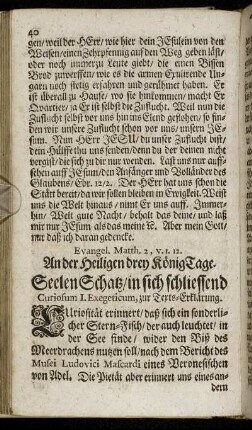 40
gen/ weil der HErr/ wie hier dein JEsulein von den
Weisen/ einen Zehrpfennig auf den Weg geben läst/
oder noch immerzu Leute giebt/ die einen Bissen
Brod zuwerffen/ wie es die armen Exulirende Un-
garn noch stetig erfahren und gerühmet haben. Er
ist überall zu Hause/ wo sie hinkommen/ macht Er
Quartier/ ja Er ist selbst die Zuflucht. Weil nun die
Zuflucht selbst vor uns hin ins Elend geflohen/ so fin-
den wir unsere Zuflucht schon vor uns/ unsern JE-
sum. Nun HErr JESU/ du unser Zuflucht bist/
dein Hülffe thu uns senden/ denn du der deinen nicht
vergist/ die sich zu dir nur wenden. Last uns nur auff-
sehen auff JEsum/ den Anfänger und Volländer des
Glaubens/ Ebr. 12/2. Der HErr hat uns schon die
Stätt bereit/ da wir sollen bleiben in Ewigkeit. Weist
uns die Welt hinaus/ nimt Er uns auff. Immer-
hin/ Welt gute Nacht/ behalt das deine/ und laß
mir nur JEsum als das meine ꝛc. Aber mein Gott/
nur daß ich daran gedencke.
Evangel. Matth. 2, v. 1. 12.
An der Heiligen drey König Tage.
Seelen Schatz/ in sich schliessend
Curiosum I. Exegeticum, zur Texts-Erklärung.
Curiosität erinnert/ daß sich ein sonderli-
cher Stern-Fisch/ der auch leuchtet/ in
der See finde/ wider den Biß des
Meerdrachens nutzen soll/ nach dem Bericht des
Musei Ludovici Mascardi eines Veronesischen
von Adel. Die Pietät aber erinnert uns eines an-
dern